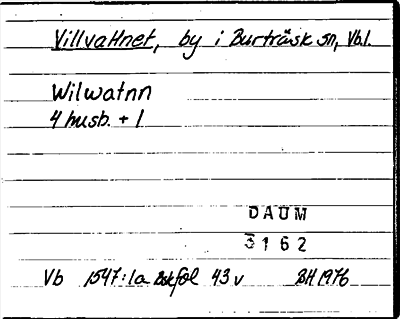 Villvattnet, by i Burträsk sn, Vbl.
Wilwatnn
4 husb. + 1
DAUM
3162
Vb 1547:1a Bskfol 43v BH 1976